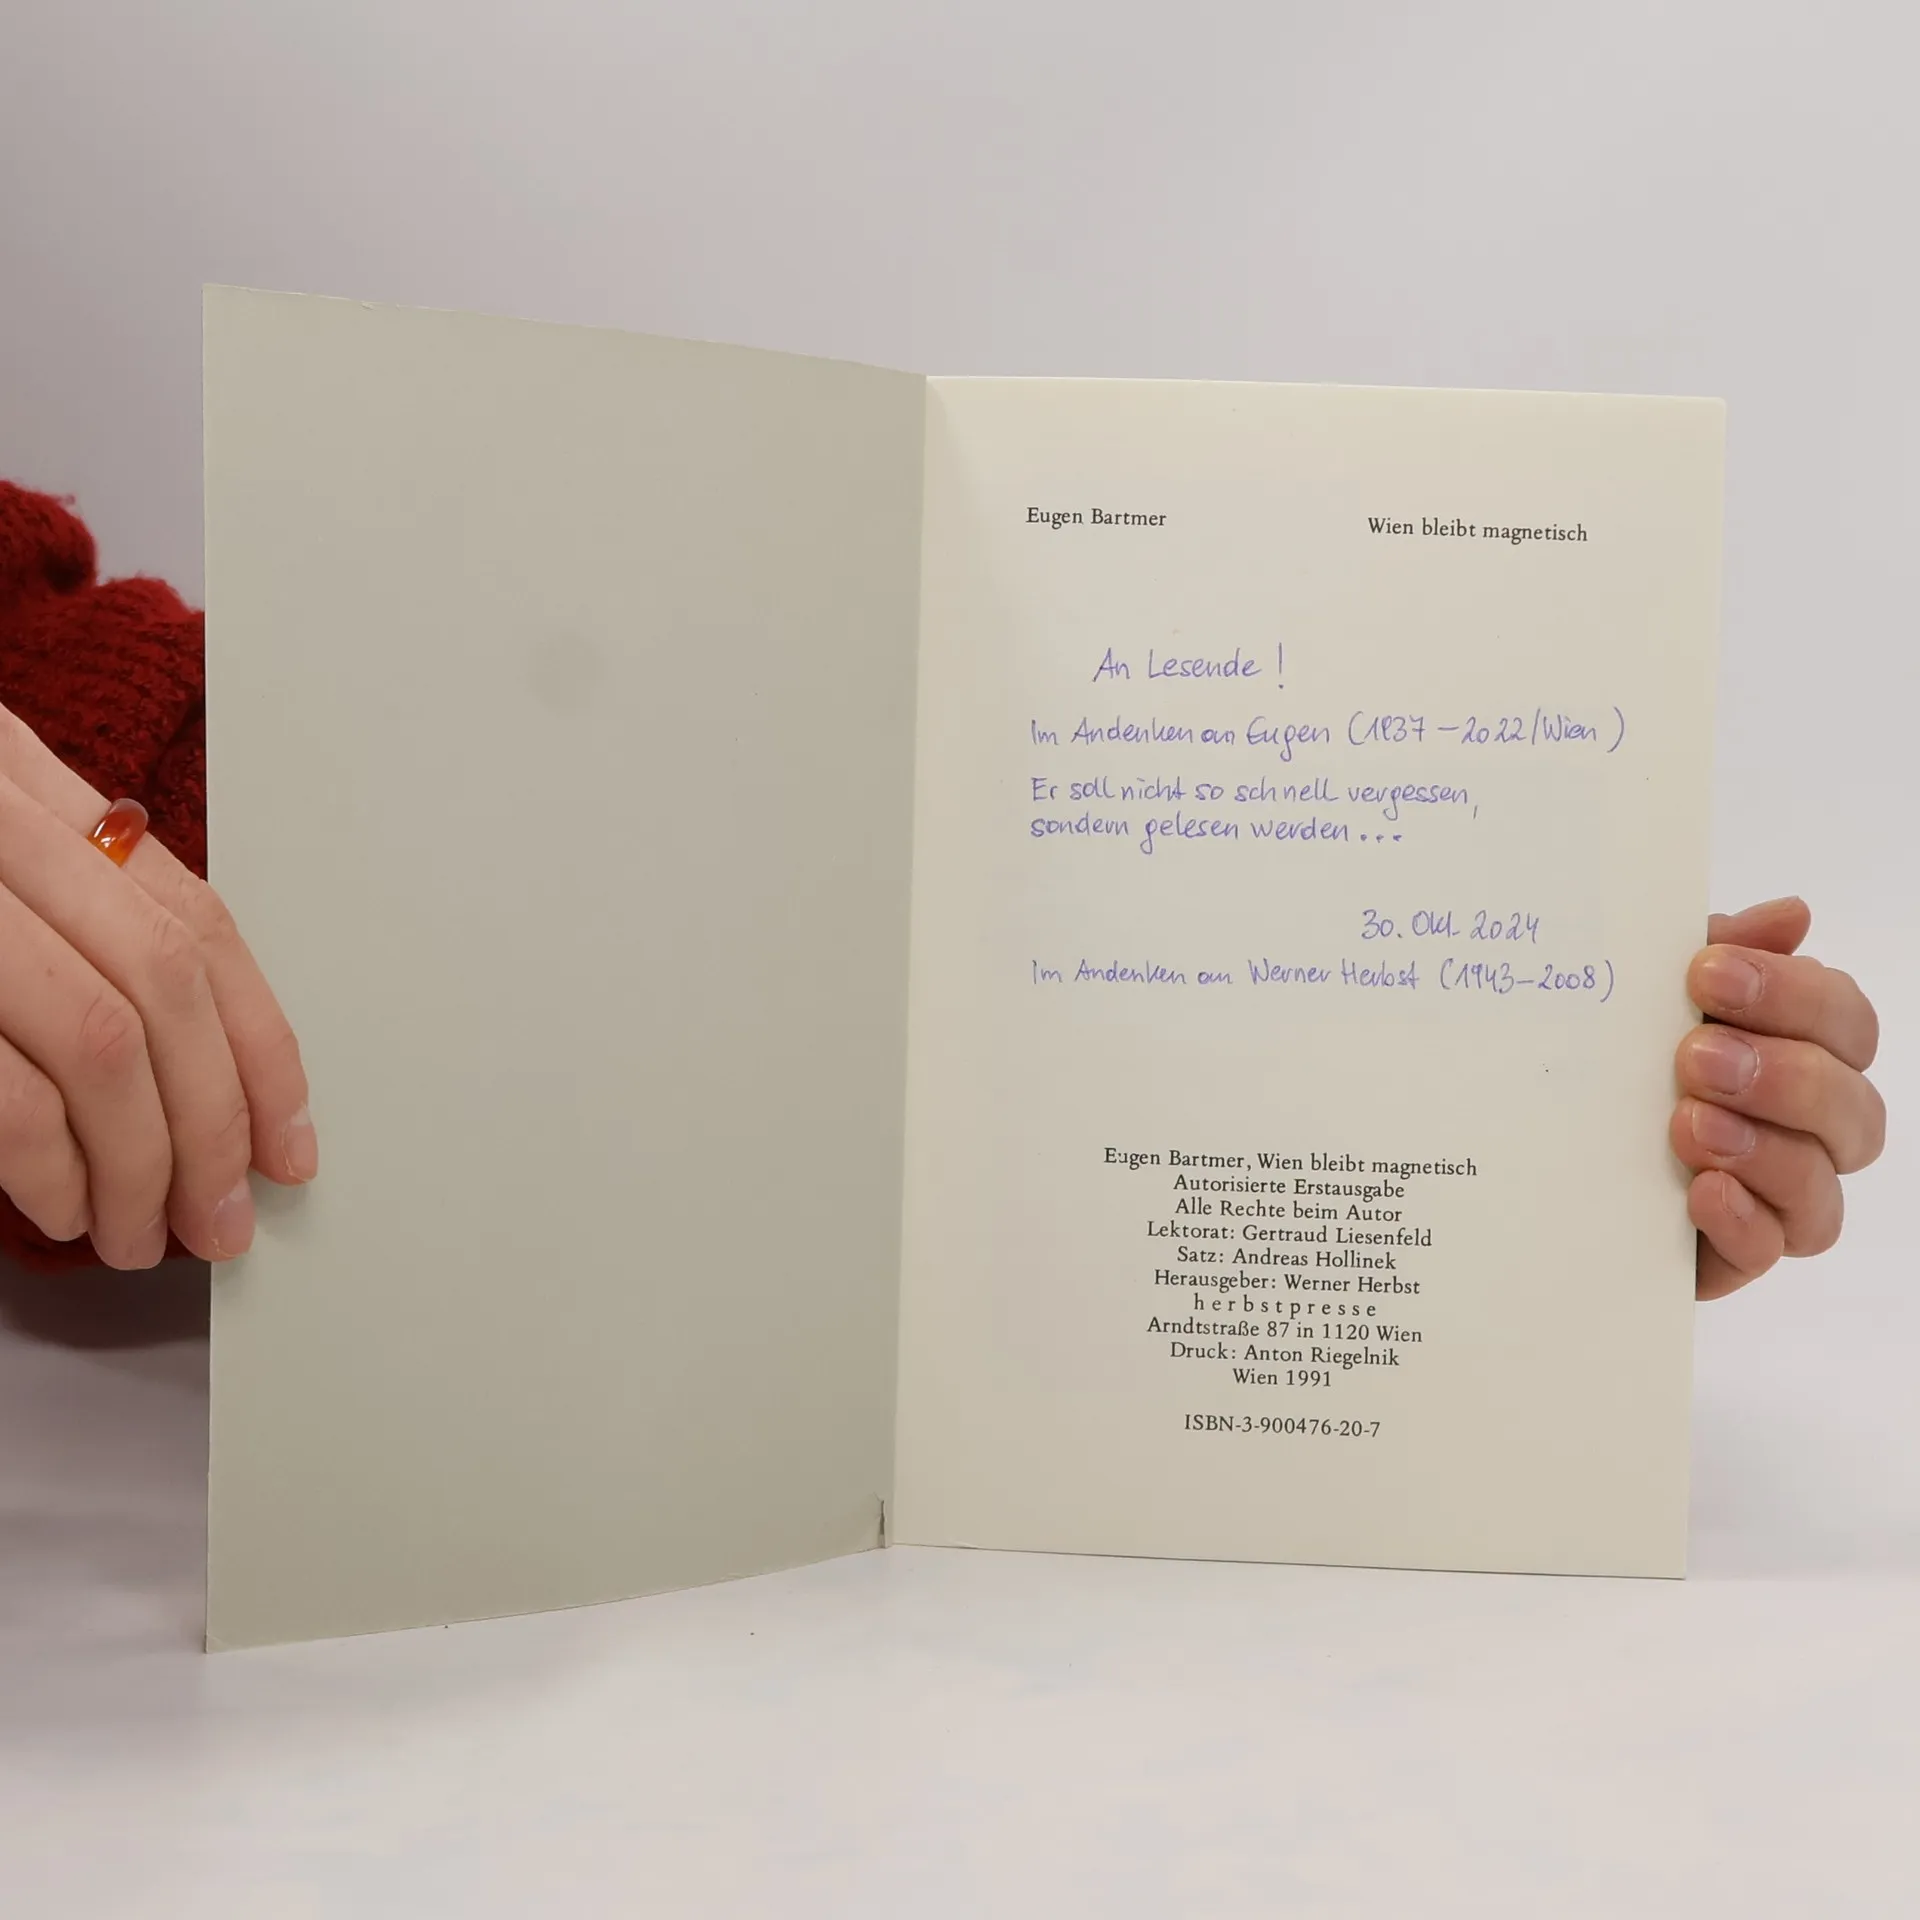 Eugen Bartmer
Wien bleibt magnetisch
An Lesende !
Im Andenken an Eugen (1937 – 2022/Wien)
Er soll nicht so schnell vergessen,
sondern gelesen werden ...
30. Okt. 2024
Im Andenken an Werner Herbst (1943–2008)
Eugen Bartmer, Wien bleibt magnetisch
Autorisierte Erstausgabe
Alle Rechte beim Autor
Lektorat: Gertraud Liesenfeld
Satz: Andreas Hollinek
Herausgeber: Werner Herbst
herbstpresse
Arndtstraße 87 in 1120 Wien
Druck: Anton Riegelnik
Wien 1991
ISBN-3-900476-20-7